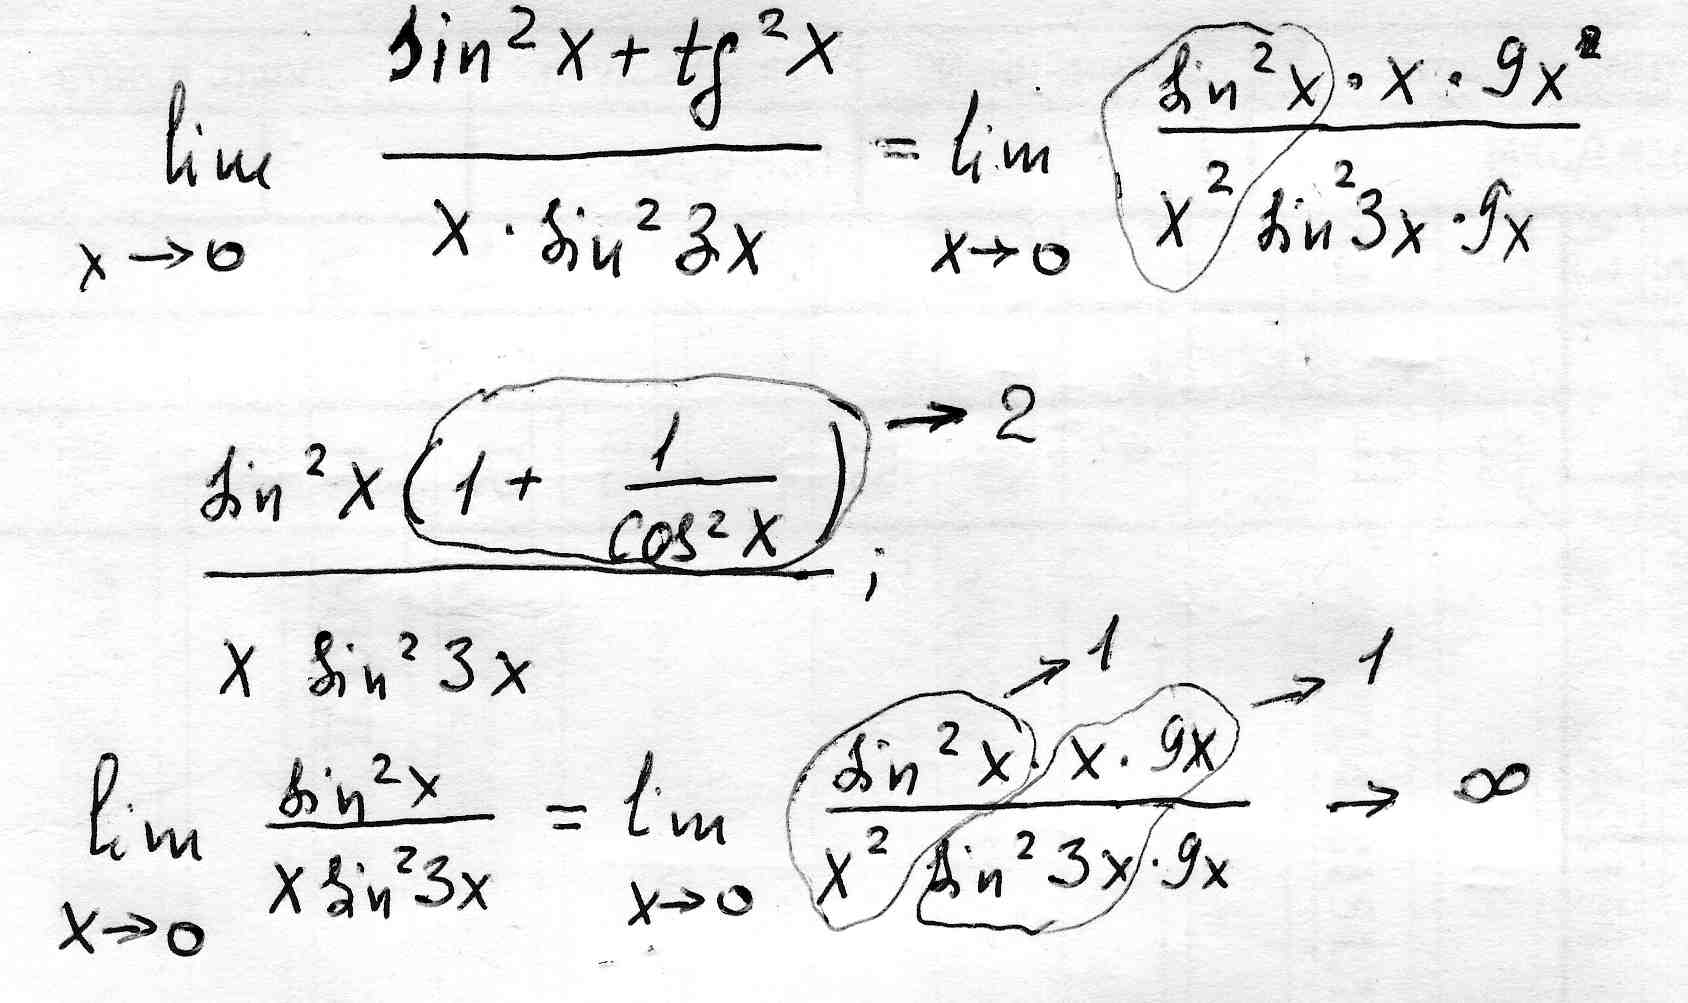 lim x→0 (sin²x + tg²x)/(x · sin²3x) = lim x→0 (sin²x · x · 9x²)/(x² sin²3x · 9x)
(sin²x (1 + 1/cos²x))/(x sin²3x) ; → 2
lim x→0 (sin²x)/(x sin²3x) = lim x→0 (sin²x · x · 9x)/(x² sin²3x · 9x) → 1 → 1 → ∞